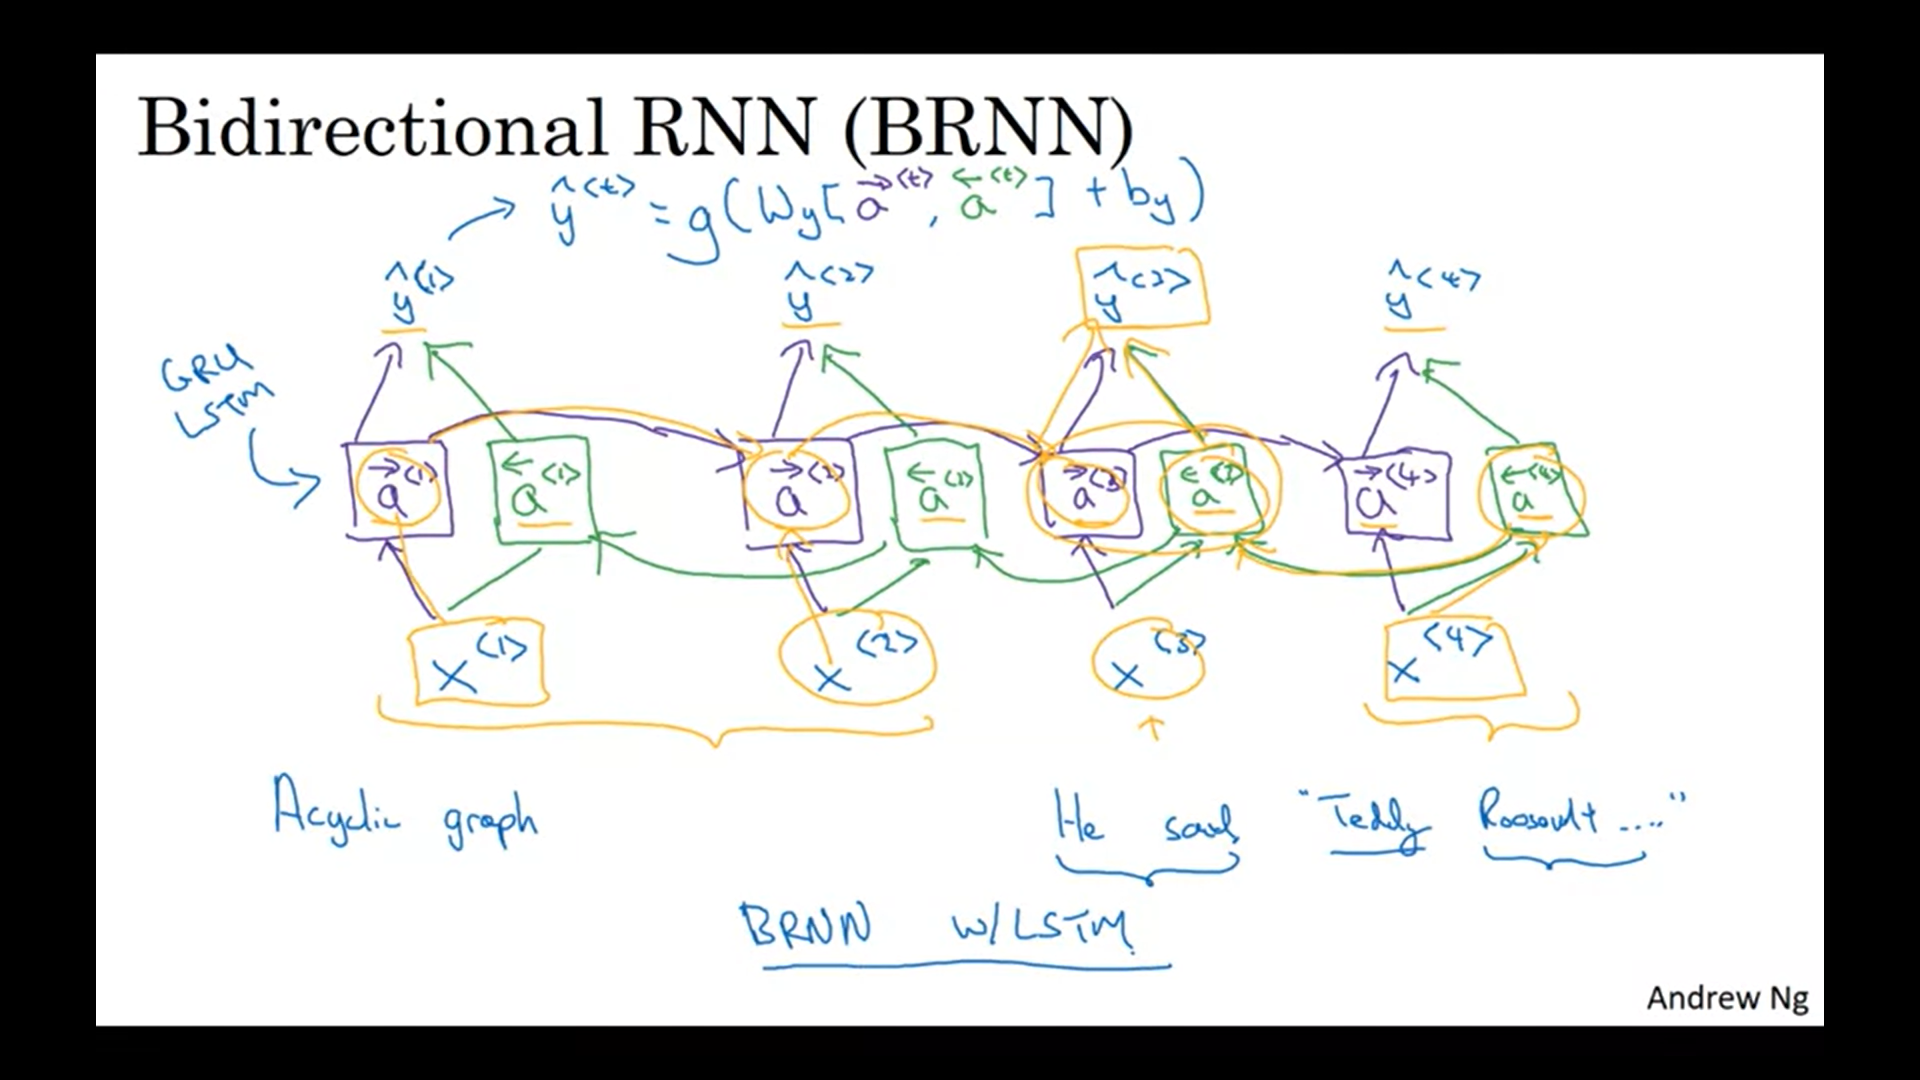 Bidirectional RNN (BRNN)
ŷ<t> = g(Wy[a→<t>, a←<t>] + by)
ŷ<1> ŷ<2> ŷ<3> ŷ<4>
GRU
LSTM
a→<1> a←<1> a→<2> a←<2> a→<3> a←<3> a→<4> a←<4>
x<1> x<2> x<3> x<4>
Acyclic graph
He said "Teddy Roosevelt ...."
BRNN w/LSTM
Andrew Ng